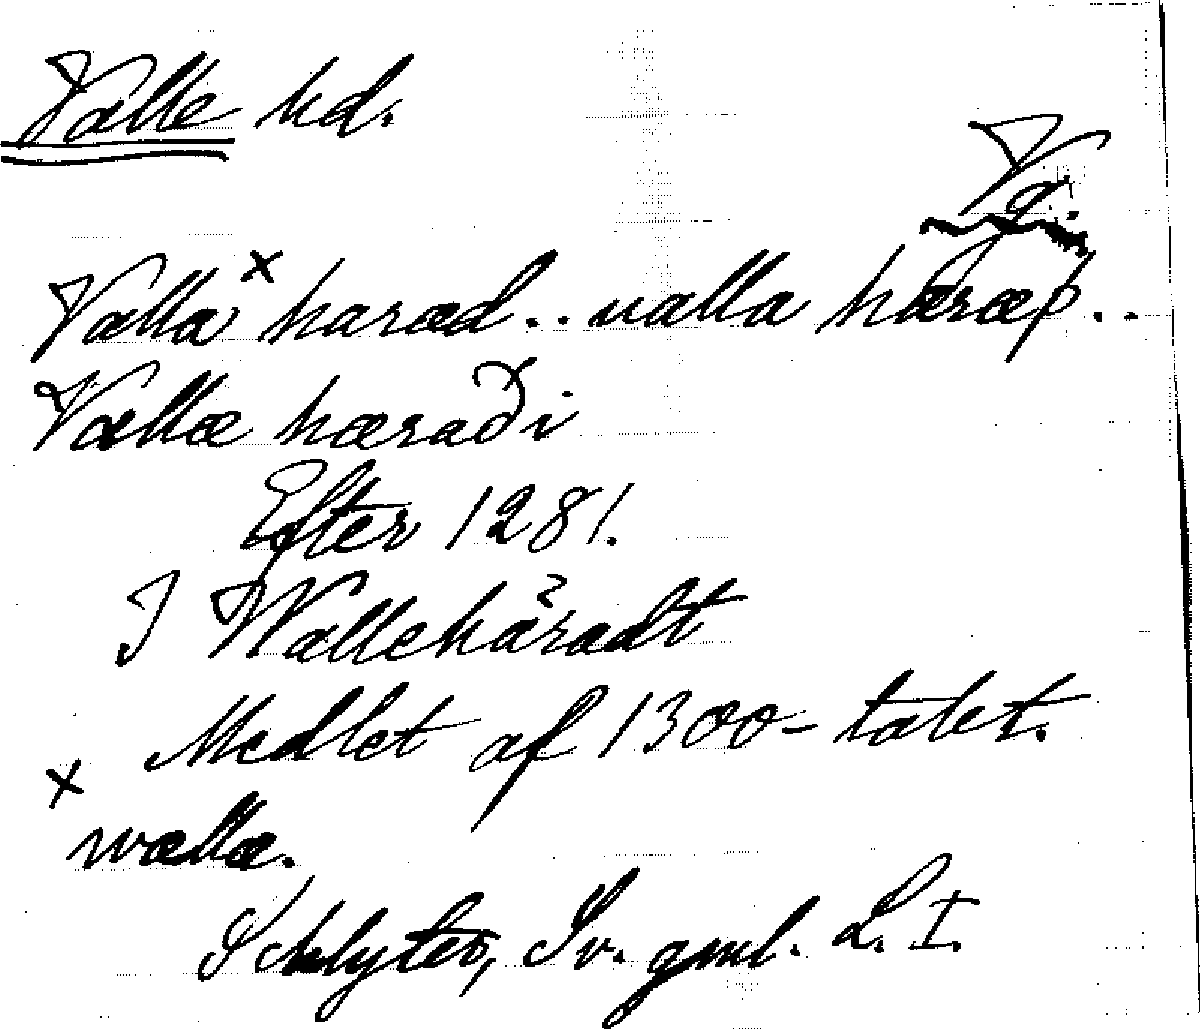 Valle hd.
Vg.
Valla x haræd.. ualla hæræþ..
Vallæ hæraði
Efter 1281.
I Wallehäradt
Medlet af 1300-talet.
x
wallæ.
Schlyter, Sv. gml. L. I.